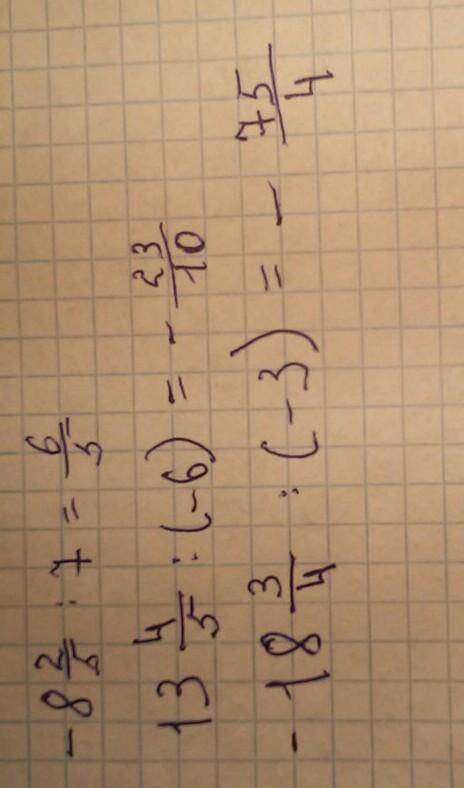 -8 2/5 : 7 = 6/5
13 4/5 : (-6) = - 23/10
- 18 3/4 : (-3) = - 75/4